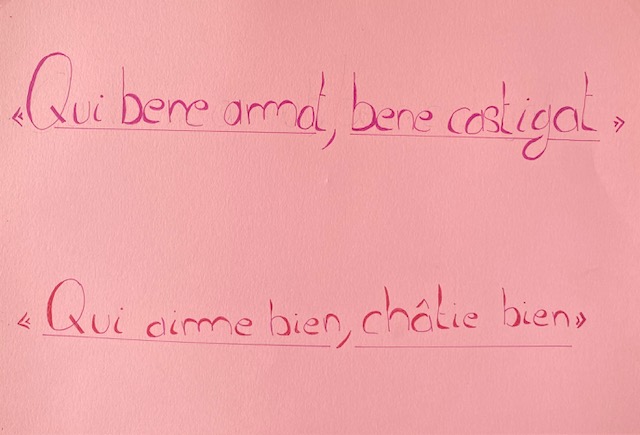 « Qui bene amat, bene castigat »
« Qui aime bien, châtie bien »